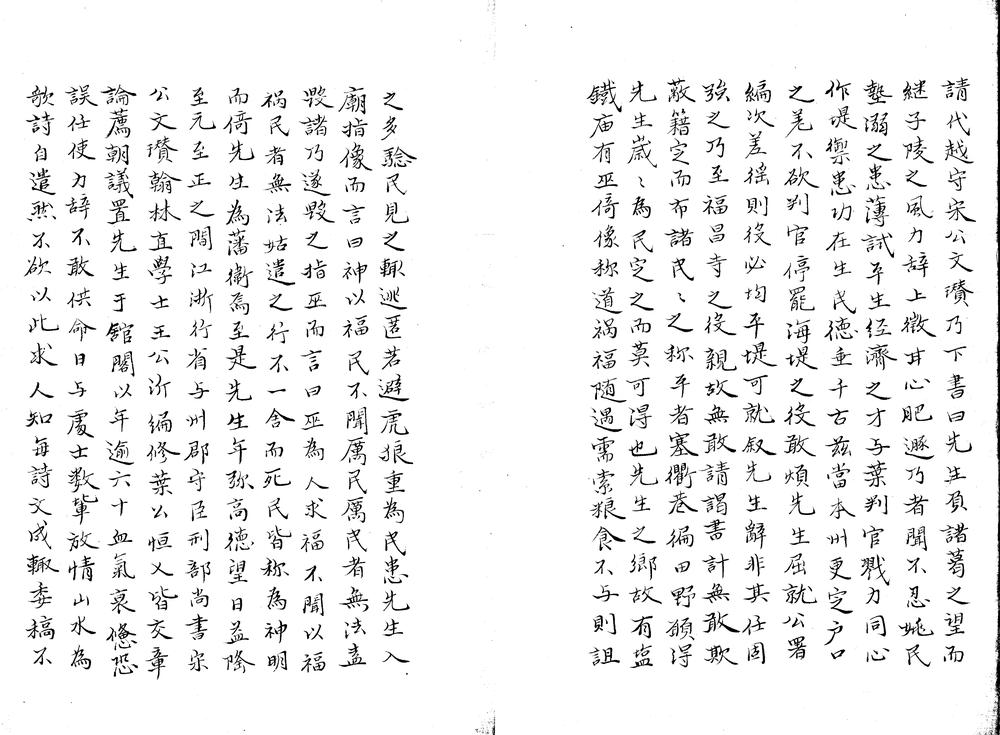 請代越守宋公文瓚乃下書曰先生負諸葛之望而
継子陵之風力辞上徵甘心肥遯乃者聞不忍姚民
墊溺之患薄試平生经濟之才与葉判官戮力同心
作堤禦患功在生民德垂千古兹當本州更定户口
之羌不欲判官停罷海堤之役敢煩先生屈就公署
編次差徭則役必均平堤可就叙先生辭非其任固
强之乃至福昌寺之役親故無敢請謁書計無敢欺
蔽籍定而布諸民〻之称平者塞衢巷徧田野願得
先生歳〻為民定之而莫可得也先生之郷故有塩
鐵庙有巫倚像称道祸福随遇需索粮食不与則詛
之多驗民見之輒逃匿若避虎狼重為民患先生入
廟指像而言曰神以福民不聞厲民厲民者無法盍
毀諸乃遂毀之指巫而言曰巫為人求福不聞以福
祸民者無法姑遣之行不一舍而死民皆称為神明
而倚先生為藩衞焉至是先生年弥高德望日益隆
至元至正之間江浙行省与州郡守臣刑部尚書宋
公文瓚翰林直學士王公沂編修葉公恒乂皆交章
論薦朝議置先生于館閣以年逾六十血氣衰憊恐
誤任使力辞不敢供命日与處士数輩放情山水為
歌詩自遣然不欲以此求人知每詩文成輒委稿不